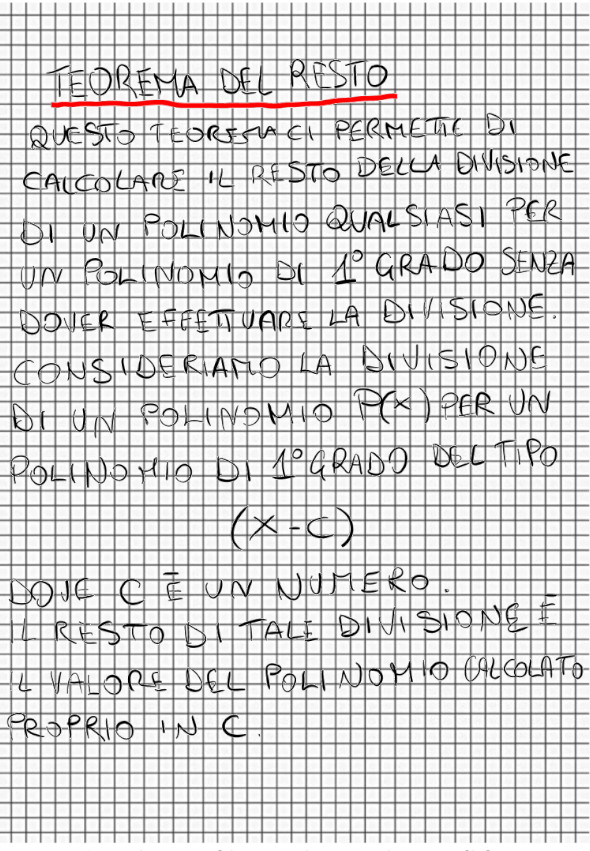 TEOREMA DEL RESTO
QUESTO TEOREMA CI PERMETTE DI
CALCOLARE IL RESTO DELLA DIVISIONE
DI UN POLINOMIO QUALSIASI PER
UN POLINOMIO DI 1° GRADO SENZA
DOVER EFFETTUARE LA DIVISIONE.
CONSIDERIAMO LA DIVISIONE
DI UN POLINOMIO P(x) PER UN
POLINOMIO DI 1° GRADO DEL TIPO
(X-C)
DOVE C È UN NUMERO.
IL RESTO DI TALE DIVISIONE È
IL VALORE DEL POLINOMIO CALCOLATO
PROPRIO IN C.